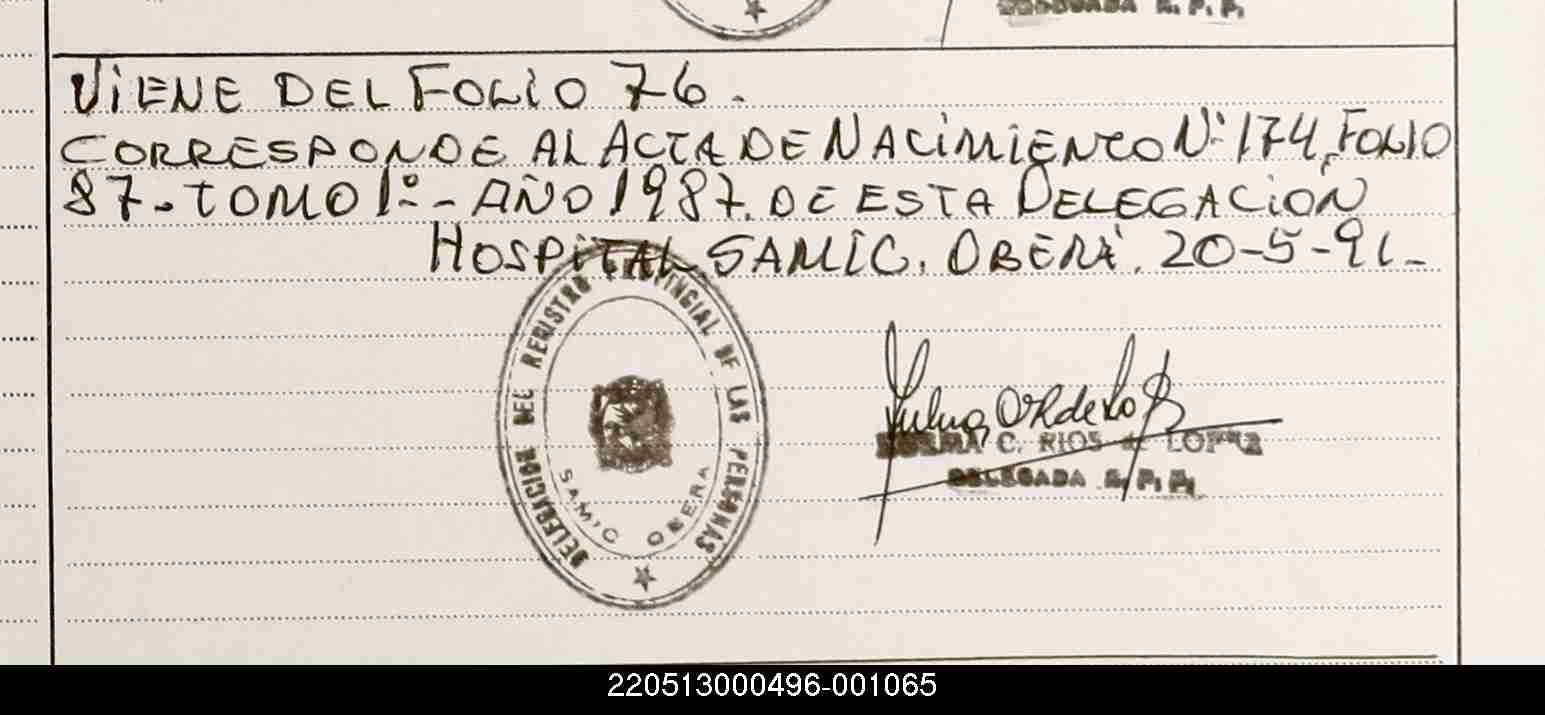 DELEGADA R. P. P.
VIENE DEL FOLIO 76.
CORRESPONDE AL ACTA DE NACIMIENTO Nº 174, FOLIO
87.- TOMO 1º.- AÑO 1987. DE ESTA DELEGACIÓN
HOSPITAL SAMIC. OBERÁ. 20-5-91.-
DELEGACION DEL REGISTRO PROVINCIAL DE LAS PERSONAS
SAMIC OBERA
C. RIOS de LOPEZ
DELEGADA R. P. P.
220513000496-001065